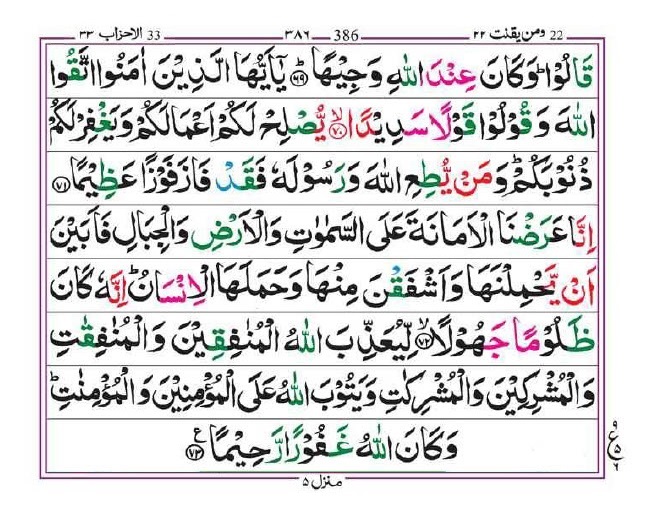 22 ومن يقنت ٢٢ 386 ٣٨٦ 33 الاحزاب ٣٣
قَالُوْا ؕ وَكَانَ عِنْدَ اللّٰهِ وَجِيْهًا ؕ ﴿۶۹﴾ يٰۤاَيُّهَا الَّذِيْنَ اٰمَنُوا اتَّقُوا
اللّٰهَ وَقُوْلُوْا قَوْلًا سَدِيْدًا ۙ ﴿۷۰﴾ يُّصْلِحْ لَكُمْ اَعْمَالَكُمْ وَيَغْفِرْ لَكُمْ
ذُنُوْبَكُمْ ؕ وَمَنْ يُّطِعِ اللّٰهَ وَرَسُوْلَهٗ فَقَدْ فَازَ فَوْزًا عَظِيْمًا ﴿۷۱﴾
اِنَّا عَرَضْنَا الْاَمَانَةَ عَلَى السَّمٰوٰتِ وَالْاَرْضِ وَالْجِبَالِ فَاَبَيْنَ
اَنْ يَّحْمِلْنَهَا وَاَشْفَقْنَ مِنْهَا وَحَمَلَهَا الْاِنْسَانُ ؕ اِنَّهٗ كَانَ
ظَلُوْمًا جَهُوْلًا ۙ ﴿۷۲﴾ لِّيُعَذِّبَ اللّٰهُ الْمُنٰفِقِيْنَ وَالْمُنٰفِقٰتِ
وَالْمُشْرِكِيْنَ وَالْمُشْرِكٰتِ وَيَتُوْبَ اللّٰهُ عَلَى الْمُؤْمِنِيْنَ وَالْمُؤْمِنٰتِ ؕ
وَكَانَ اللّٰهُ غَفُوْرًا رَّحِيْمًا ﴿۷۳﴾ ع
منزل ۵